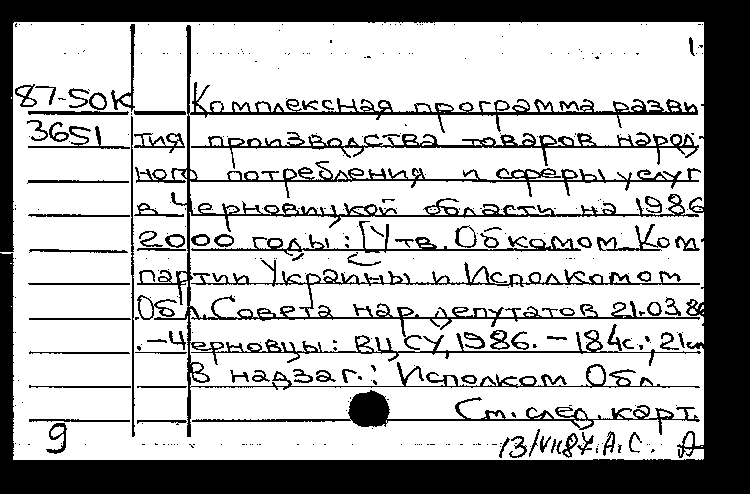 1-
87-50К Комплексная программа разви-
3651 тия производства товаров народ-
ного потребления и сферы услуг
в Черновицкой области на 1986
2000 годы : [Утв. Обкомом Ком-
партии Украины и Исполкомом
Обл. Совета нар. депутатов 21.03.86
. – Черновцы : ВЦ СУ, 1986. – 184с.; 21см
В надзаг.: Исполком Обл.
См. след. карт.
9 13/VII87. А.С.